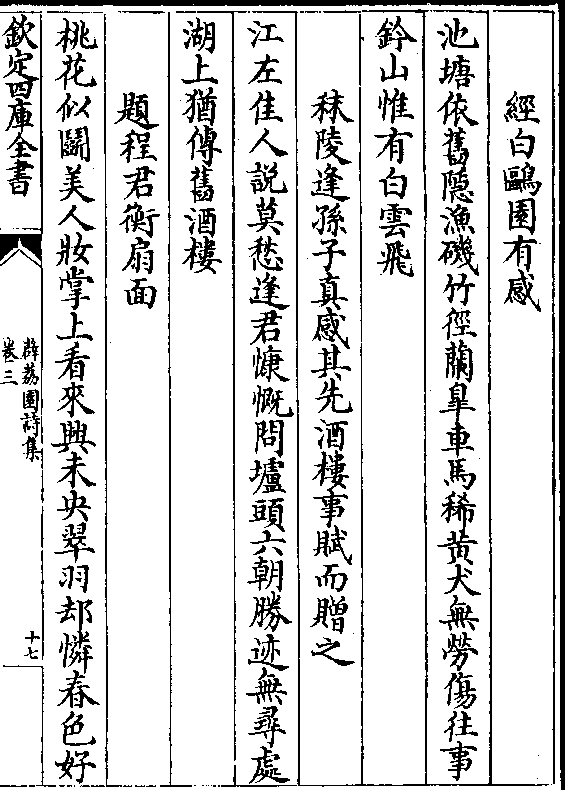 經白鷗園有感
池塘依舊隠漁磯竹徑蘭臯車馬稀黄犬無勞傷往事
鈐山惟有白雲飛
秣陵逢孫子真感其先酒樓事賦而贈之
江左佳人説莫愁逢君慷慨問壚頭六朝勝迹無尋處
湖上猶傳舊酒樓
題程君衡扇面
桃花似鬬美人妝掌上看來興未央翠羽却憐春色好
欽定四庫全書
薜荔園詩集
卷三
十七